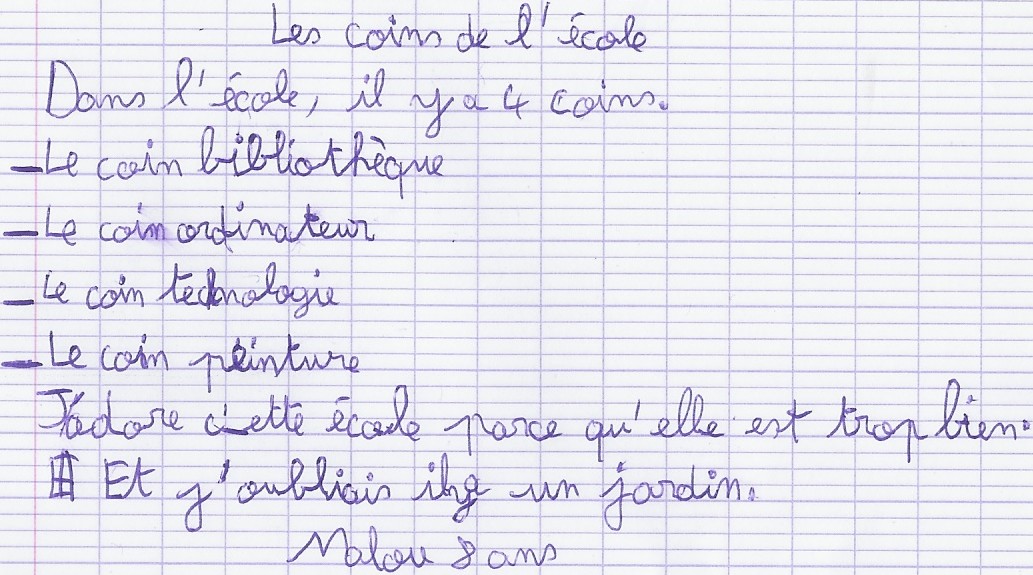 Les coins de l'école
Dans l'école, il y a 4 coins.
- Le coin bibliothèque
- Le coin ordinateur
- Le coin technologie
- Le coin peinture
J'adore cette école parce qu'elle est trop bien.
Et j'oubliais un jardin.
Malou 8 ans